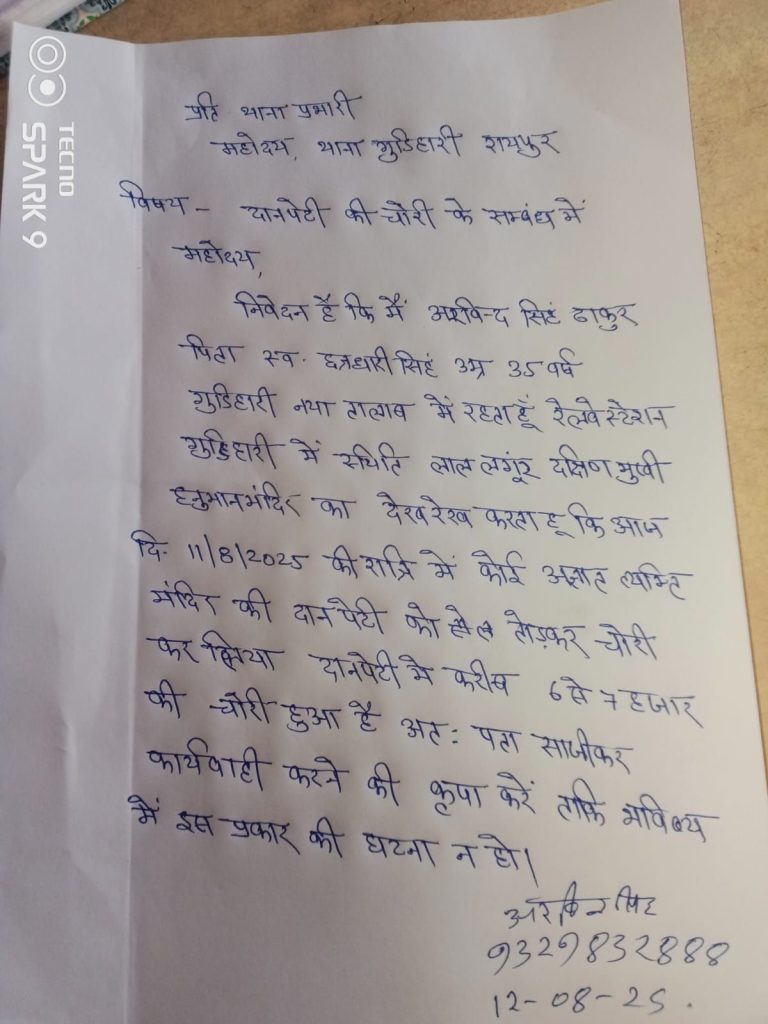 TECNO
SPARK 9
प्रति थाना प्रभारी
महोदय, थाना गुडिहारी रायपुर
विषय - दानपेटी की चोरी के सम्बंध में
महोदय,
निवेदन है कि मैं अरविन्द सिहं ठाकुर
पिता स्व. छत्रधारी सिहं उम्र 35 वर्ष
गुडिहारी नया तालाब में रहता हूँ रेलवे स्टेशन
गुडिहारी में स्थिति लाल लगूंर दक्षिण मुखी
हनुमान मंदिर का देखरेख करता हू कि आज
दि. 11/8/2025 की रात्रि में कोई अज्ञात व्यक्ति
मंदिर की दान पेटी को तोड़कर चोरी
कर लिया दानपेटी मे करीब 6 से 7 हजार
की चोरी हुआ है अत: पता साजीकर
कार्यवाही करने की कृपा करें ताकि भविष्य
में इस प्रकार की घटना न हो।
9329832888
12-08-25.